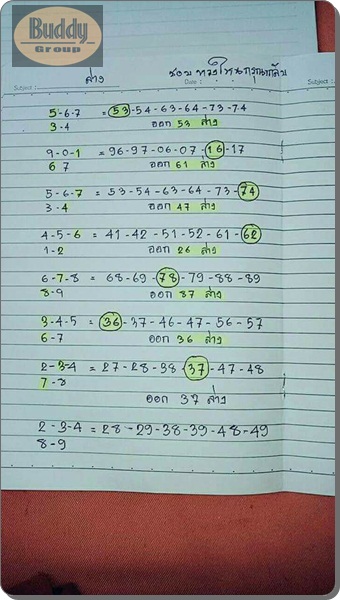 Buddy
Group
Subject :
ล่าง
Date :
ชอบทางไหนกรุณากลับ
Subject :
5-6-7 = 53-54-63-64-73-74
3-4 ออก 53 ล่าง
9-0-1 = 96-97-06-07-16-17
6 7 ออก 61 ล่าง
5-6-7 = 53-54-63-64-73-74
3-4 ออก 47 ล่าง
4-5-6 = 41-42-51-52-61-62
1-2 ออก 26 ล่าง
6-7-8 = 68-69-78-79-88-89
8-9 ออก 87 ล่าง
3-4-5 = 36-37-46-47-56-57
6-7 ออก 36 ล่าง
2-3-4 = 27-28-38-37-47-48
7-8
ออก 37 ล่าง
2-3-4 = 28-29-38-39-48-49
8-9